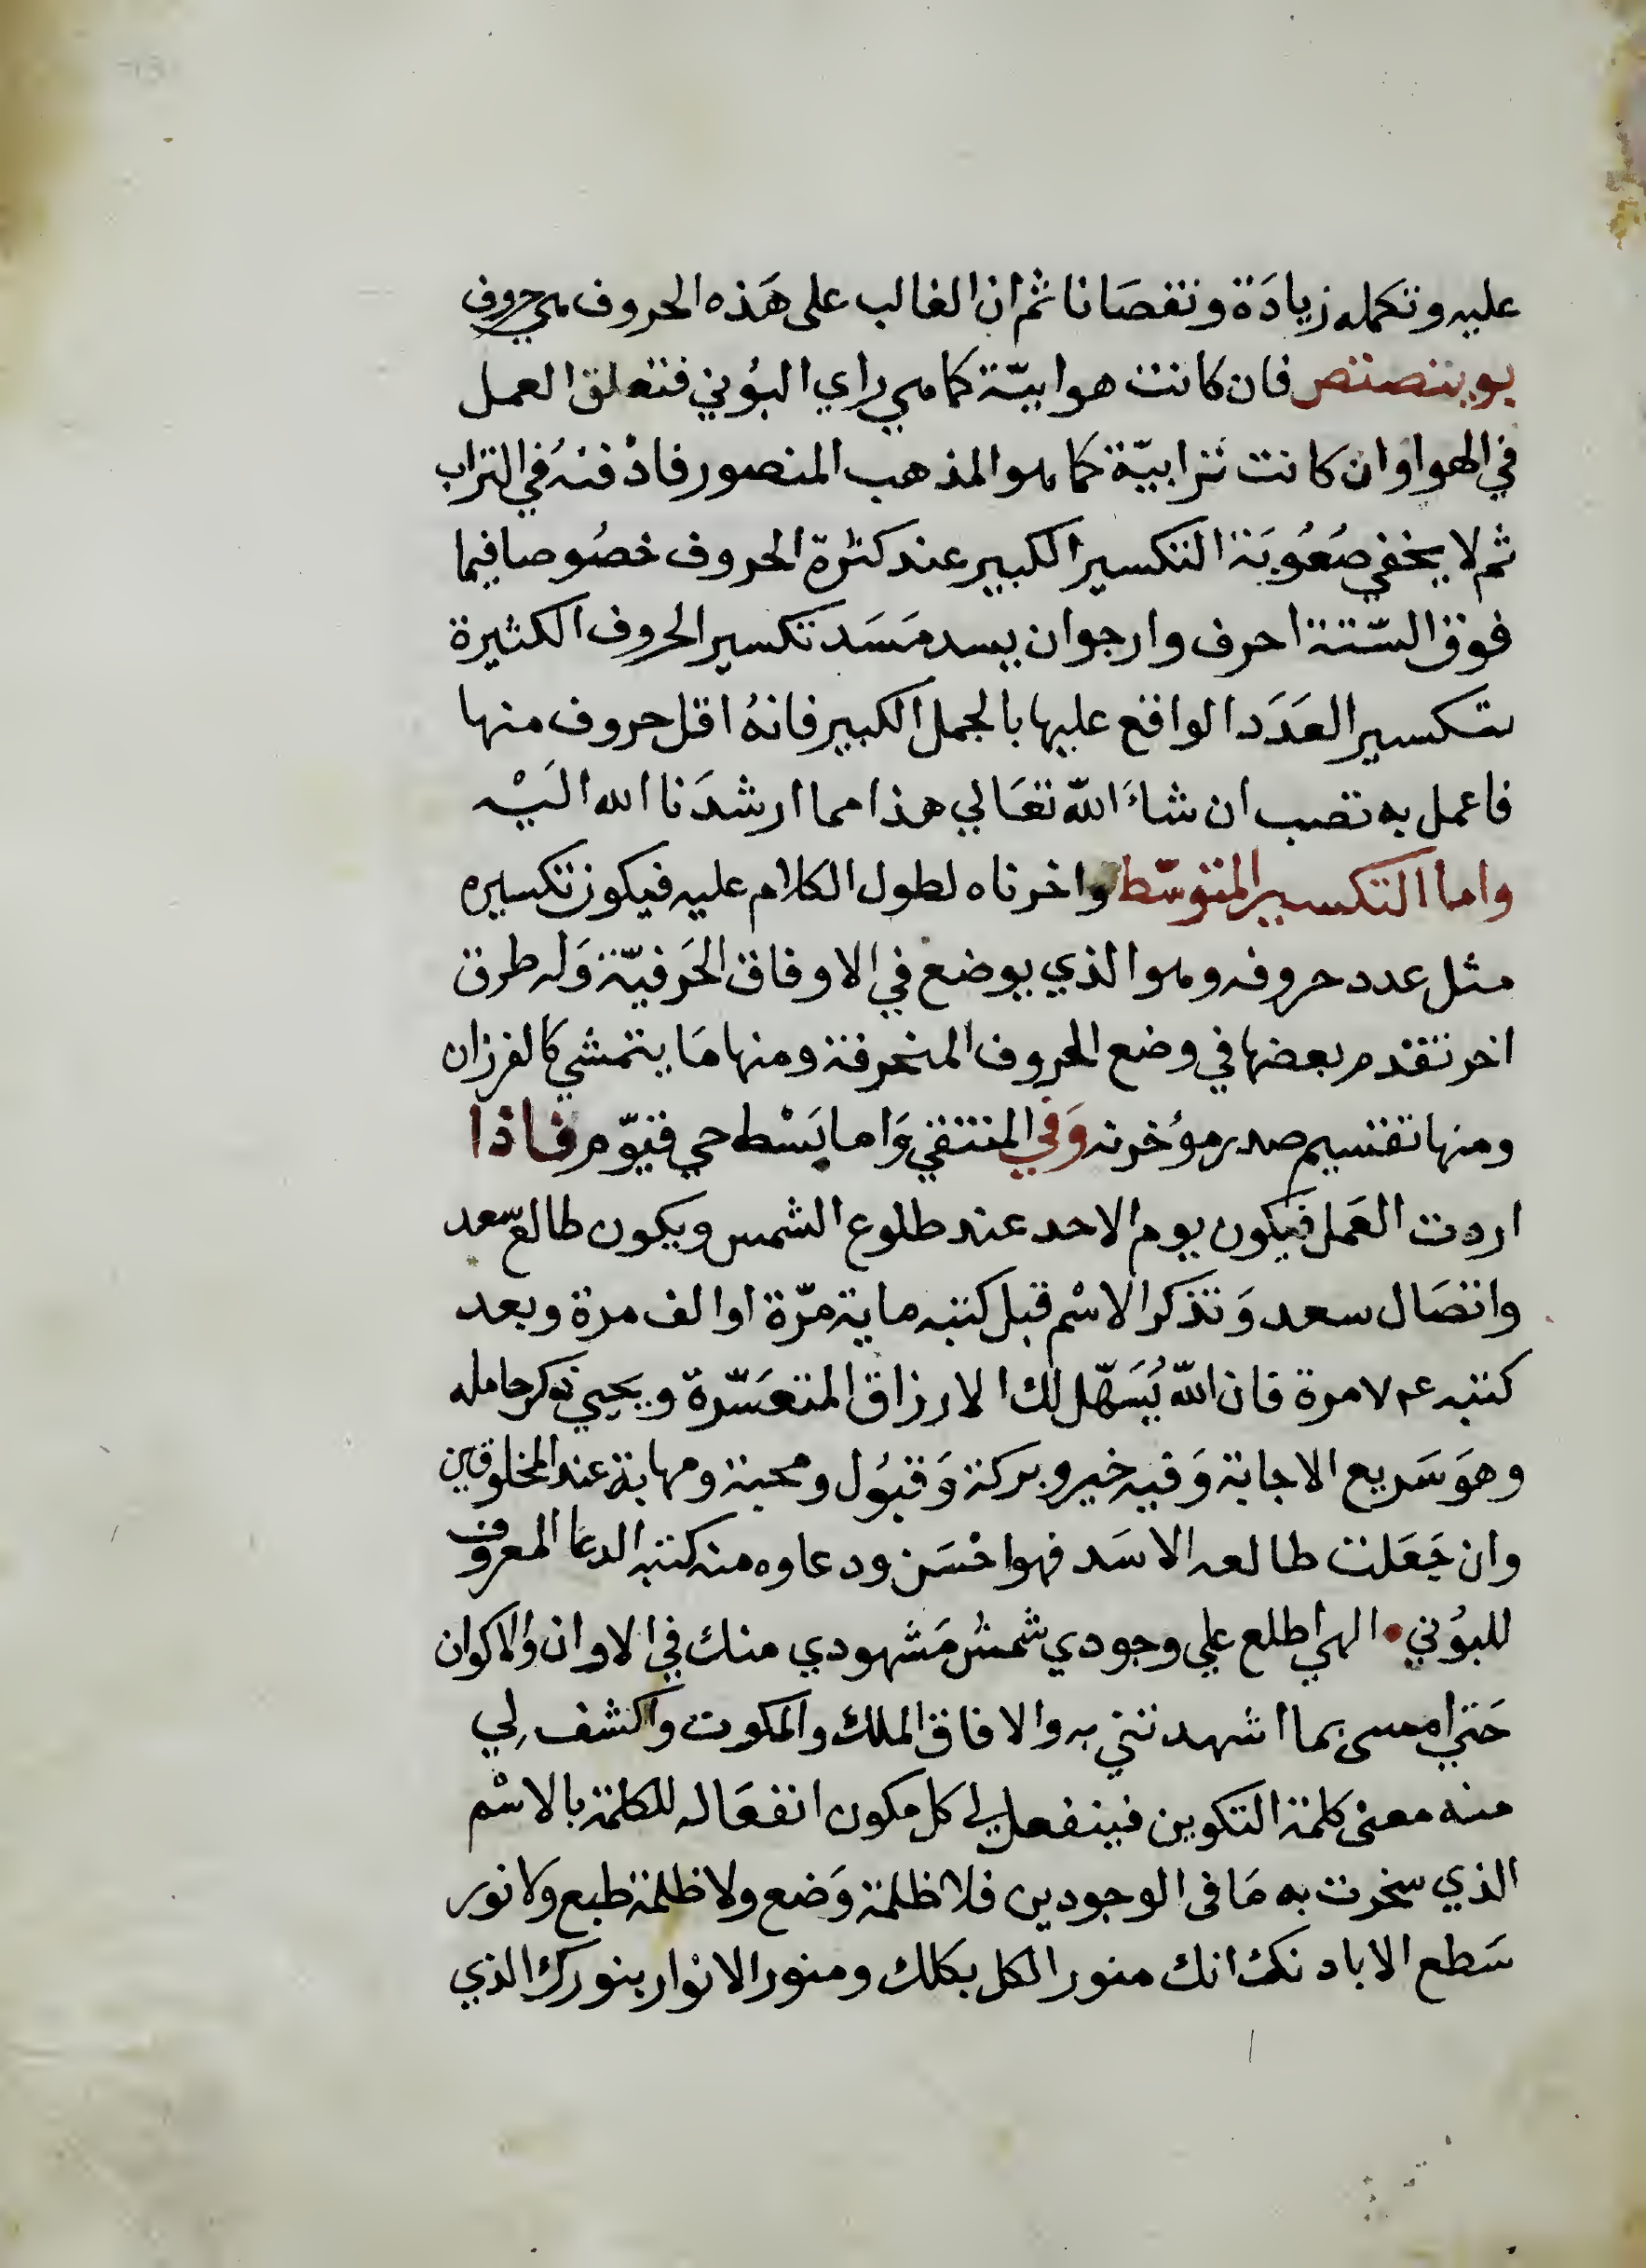 عليه وتكمله زيادَة ونقصَانا ثم ان الغالب على هَذه الحروف هي حروف
بوينصتص فان كانت هوابيّة كما هي راي البُوني فتعلق العمل
في الهوا وان كانت ترابيّة كما هو المذهب المنصور فادْفنهُ في التراب
ثم لا يخفي صُعُوبَة التكسير الكبير عند كثرة الحروف خصُوصا فيما
فوق السّتة احرف وارجوان يسد مَسَد تكسير الحروف الكثيرة
بتكسير العَدَد الواقع عليها بالجمل الكبير فانهُ اقل حروف منها
فاعمل به تصب ان شاءَ اللّه تعَالي هذا مما ارشدَنا الله اليْه
واما التكسير المتوسّط واخرناه لطول الكلام عليه فيكون تكسيره
مثل عدد حروفه وهو الذي يوضع في الاوفاق الحَرفيّة وَله طرق
اخر تقدم بعضها في وضع الحروف المنحرفة ومنها مَا يتمشي كالفرزان
ومنها تقسيم صدر مؤخرته وَفي المنتقي وَاما بَسْط حي قيّوم فاذا
اردت العَمل فيكون يوم الاحد عند طلوع الشمس ويكون طالع سّعد
واتصَال سعد وَتذكر الاسْم قبل كتبه ماية مرّة او الف مرة وبعد
كتبه مرة فان اللّه يُسَهّل لك الارزاق المتعسَّرة ويحيي حامله
وهوَ سَريع الاجابة وَفيه خير وبركة وَقبُول ومحبة ومهابة عند المخلوقين
وان جَعَلت طالعه الاسَد فهوا حْسَن ودعاوه منه كتبه الدعا المعروف
للبوُني • الهي اطلع علي وجودي شمسُ مَشهودي منك في الاوان والاكوان
حَتي امسى بما اشهدتني به والافاق الملك والمكوت واكشف لِي
منه معنى كلمة التكوين فينفعل لي كل مكون انفعَاله للكلمة بالاسْم
الذي سخرت به مَا فى الوجودين فلا ظلمة وَضع ولا ظلمة طبع ولا نور
سَطع الاباد انك منور الكل بكلك ومنور الانوار بنورك الذي